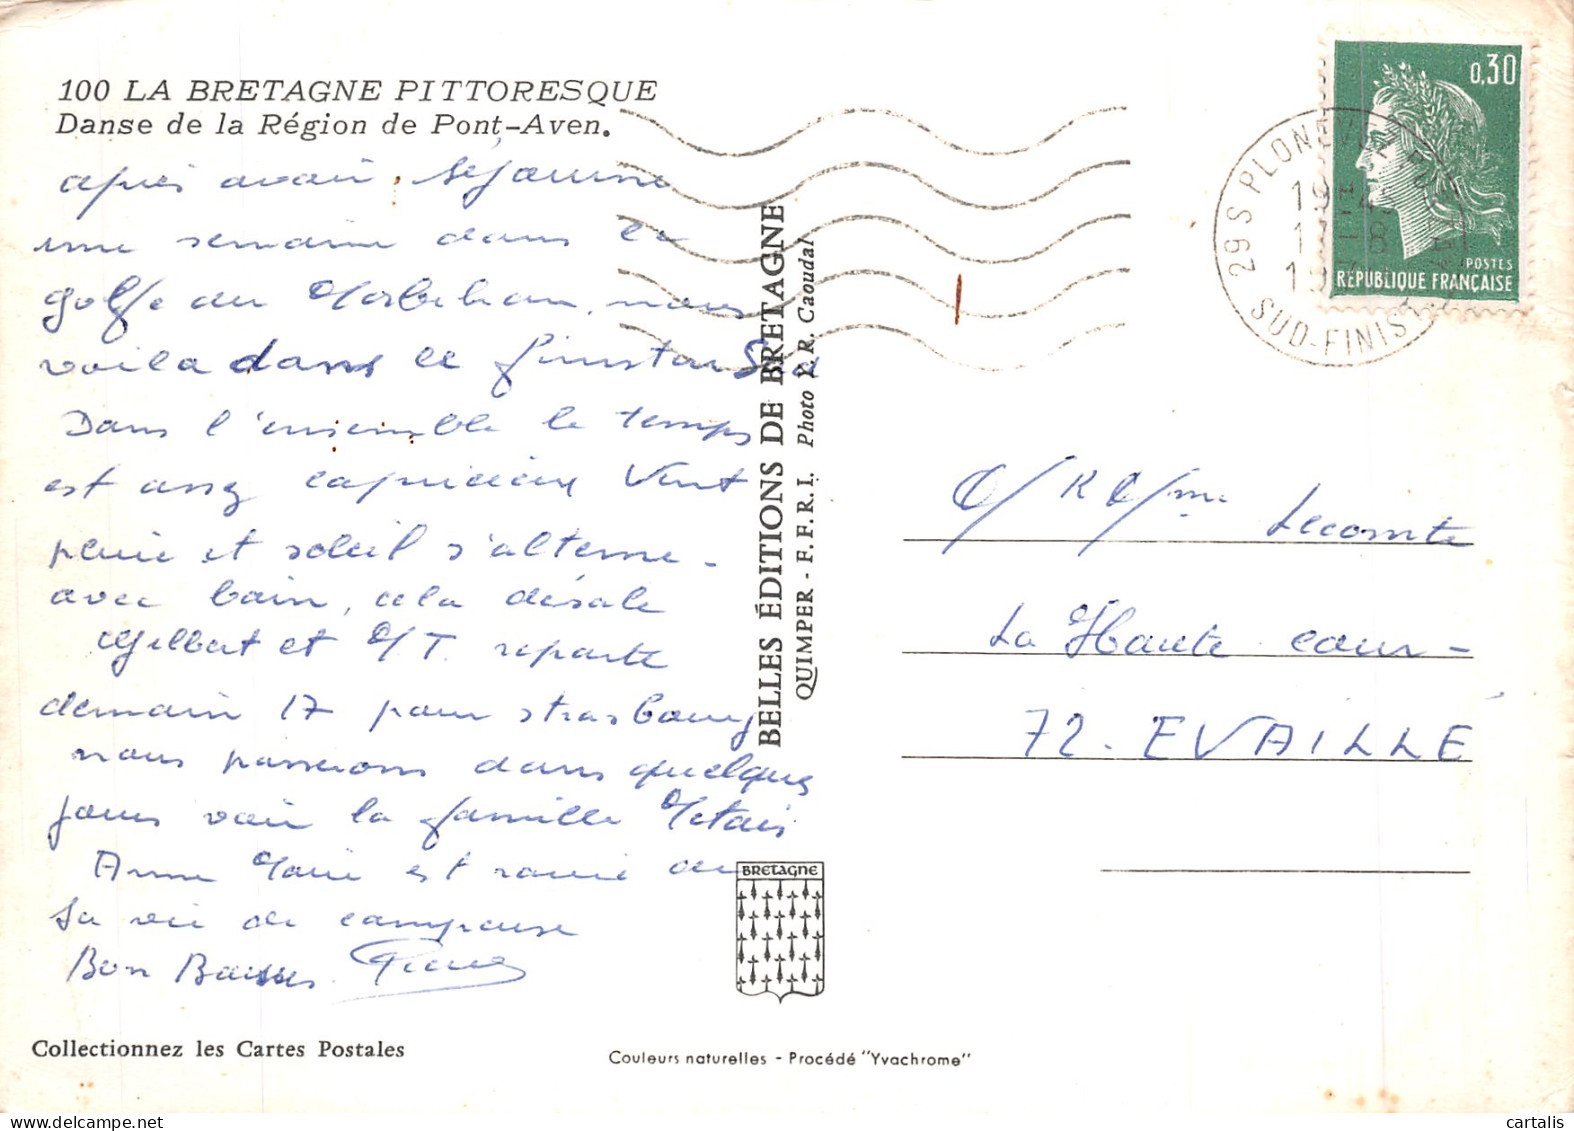 100 LA BRETAGNE PITTORESQUE
Danse de la Région de Pont-Aven.
après avoir séjourné
une semaine dans le
golfe du Morbihan, nous
voila dans le finistar Sud
Dans l'ensemble le temps
est assez capricieux Vent
pluie et soleil s'alterne
avec bain, cela désale
Gilbert et M/T. reparte
demain 17 pour strasbourg
nous passerons dans quelques
jours voir la famille Métais
Anne Marie est ravie de
sa vie de campeuse
Bon Baisses
BELLES ÉDITIONS DE BRETAGNE
QUIMPER - F.F.R.I. Photo Y. R. Caoudal
BRETAGNE
0,30
POSTES
RÉPUBLIQUE FRANÇAISE
29 S PLONEVEZ
SUD-FINIST
M/R M/me Lecomte
La Haute cour-
72. EVAILLÉ
Collectionnez les Cartes Postales
Couleurs naturelles - Procédé "Yvachrome"
cartalis
www.delcampe.net